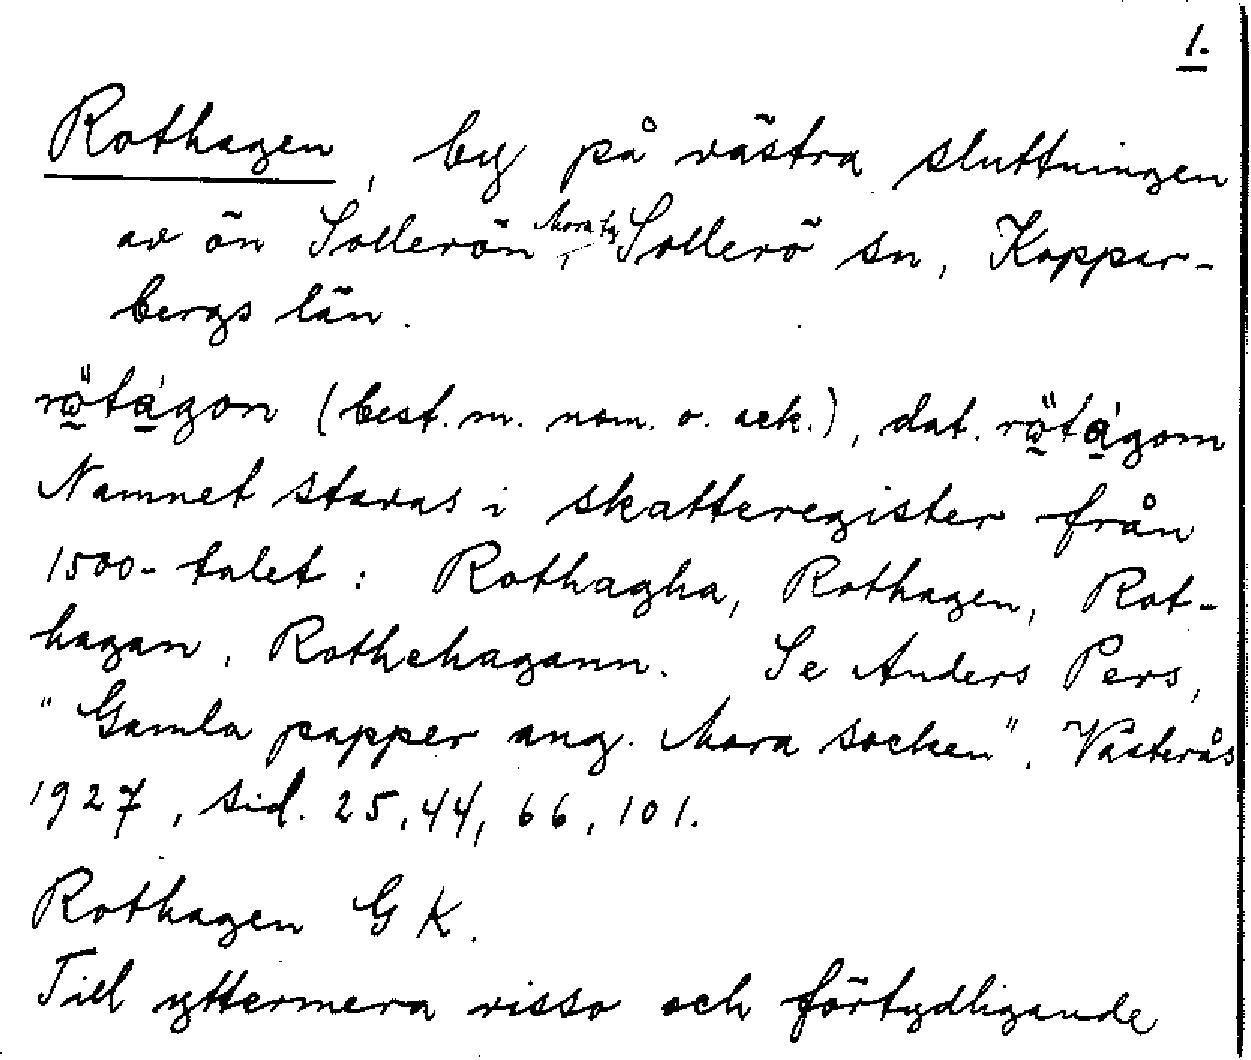 1.
Rothagen, by på västra sluttningen
av ön Sollerön, Mora tg Sollerö sn, Koppar-
bergs län.
rö̀tágon (best. m. nom. o. ack.), dat. rö̀tágom
Namnet stavas i skatteregister från
1500-talet: Rothagha, Rothagen, Rot-
hagan, Rothehagann. Se Anders Pers,
"Gamla papper ang. Mora socken". Västerås
1927, sid. 25, 44, 66, 101.
Rothagen G K.
Till yttermera visso och förtydligande